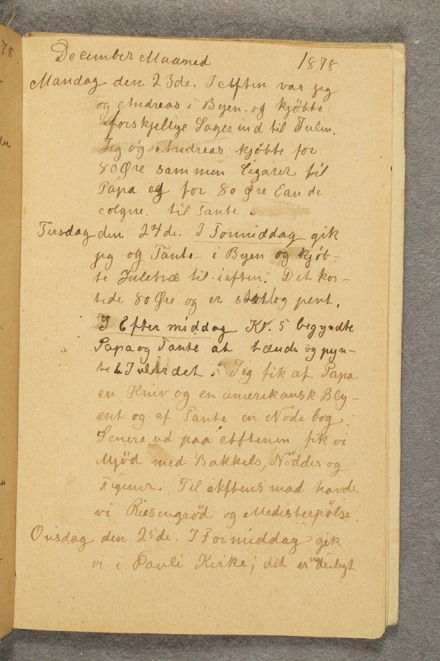 December Maaned 1878
Mandag den 23de. I Aften var jeg
og Andreas i Byen og kjøbte
forskjellige Sager ind til Julen.
Jeg og Andreas kjøbte for
80 Øre sammen Cigarer til
Papa og for 80 Øre Eau de
cologne til Tante.
Tirsdag den 24de. I Formiddag gik
jeg og Tante i Byen og kjøb-
te Juletræ til iaften. Det kos-
tede 80 Øre og er stort og pent.
I Eftermiddag Kl. 5 begyndte
Papa og Tante at tænde og pyn-
te Juletræet. Jeg fik af Papa
en Kniv og en amerikansk Bly-
ant og af Tante en Node bog.
Senere ud paa Aftenen fik vi
Mjød med Bakkels, Nødder og
Figener. Til Aftensmad havde
vi Riesengrød og Medisterpølse
Onsdag den 25de. I Formiddag gik
vi i Pauli Kirke; det er deiligt